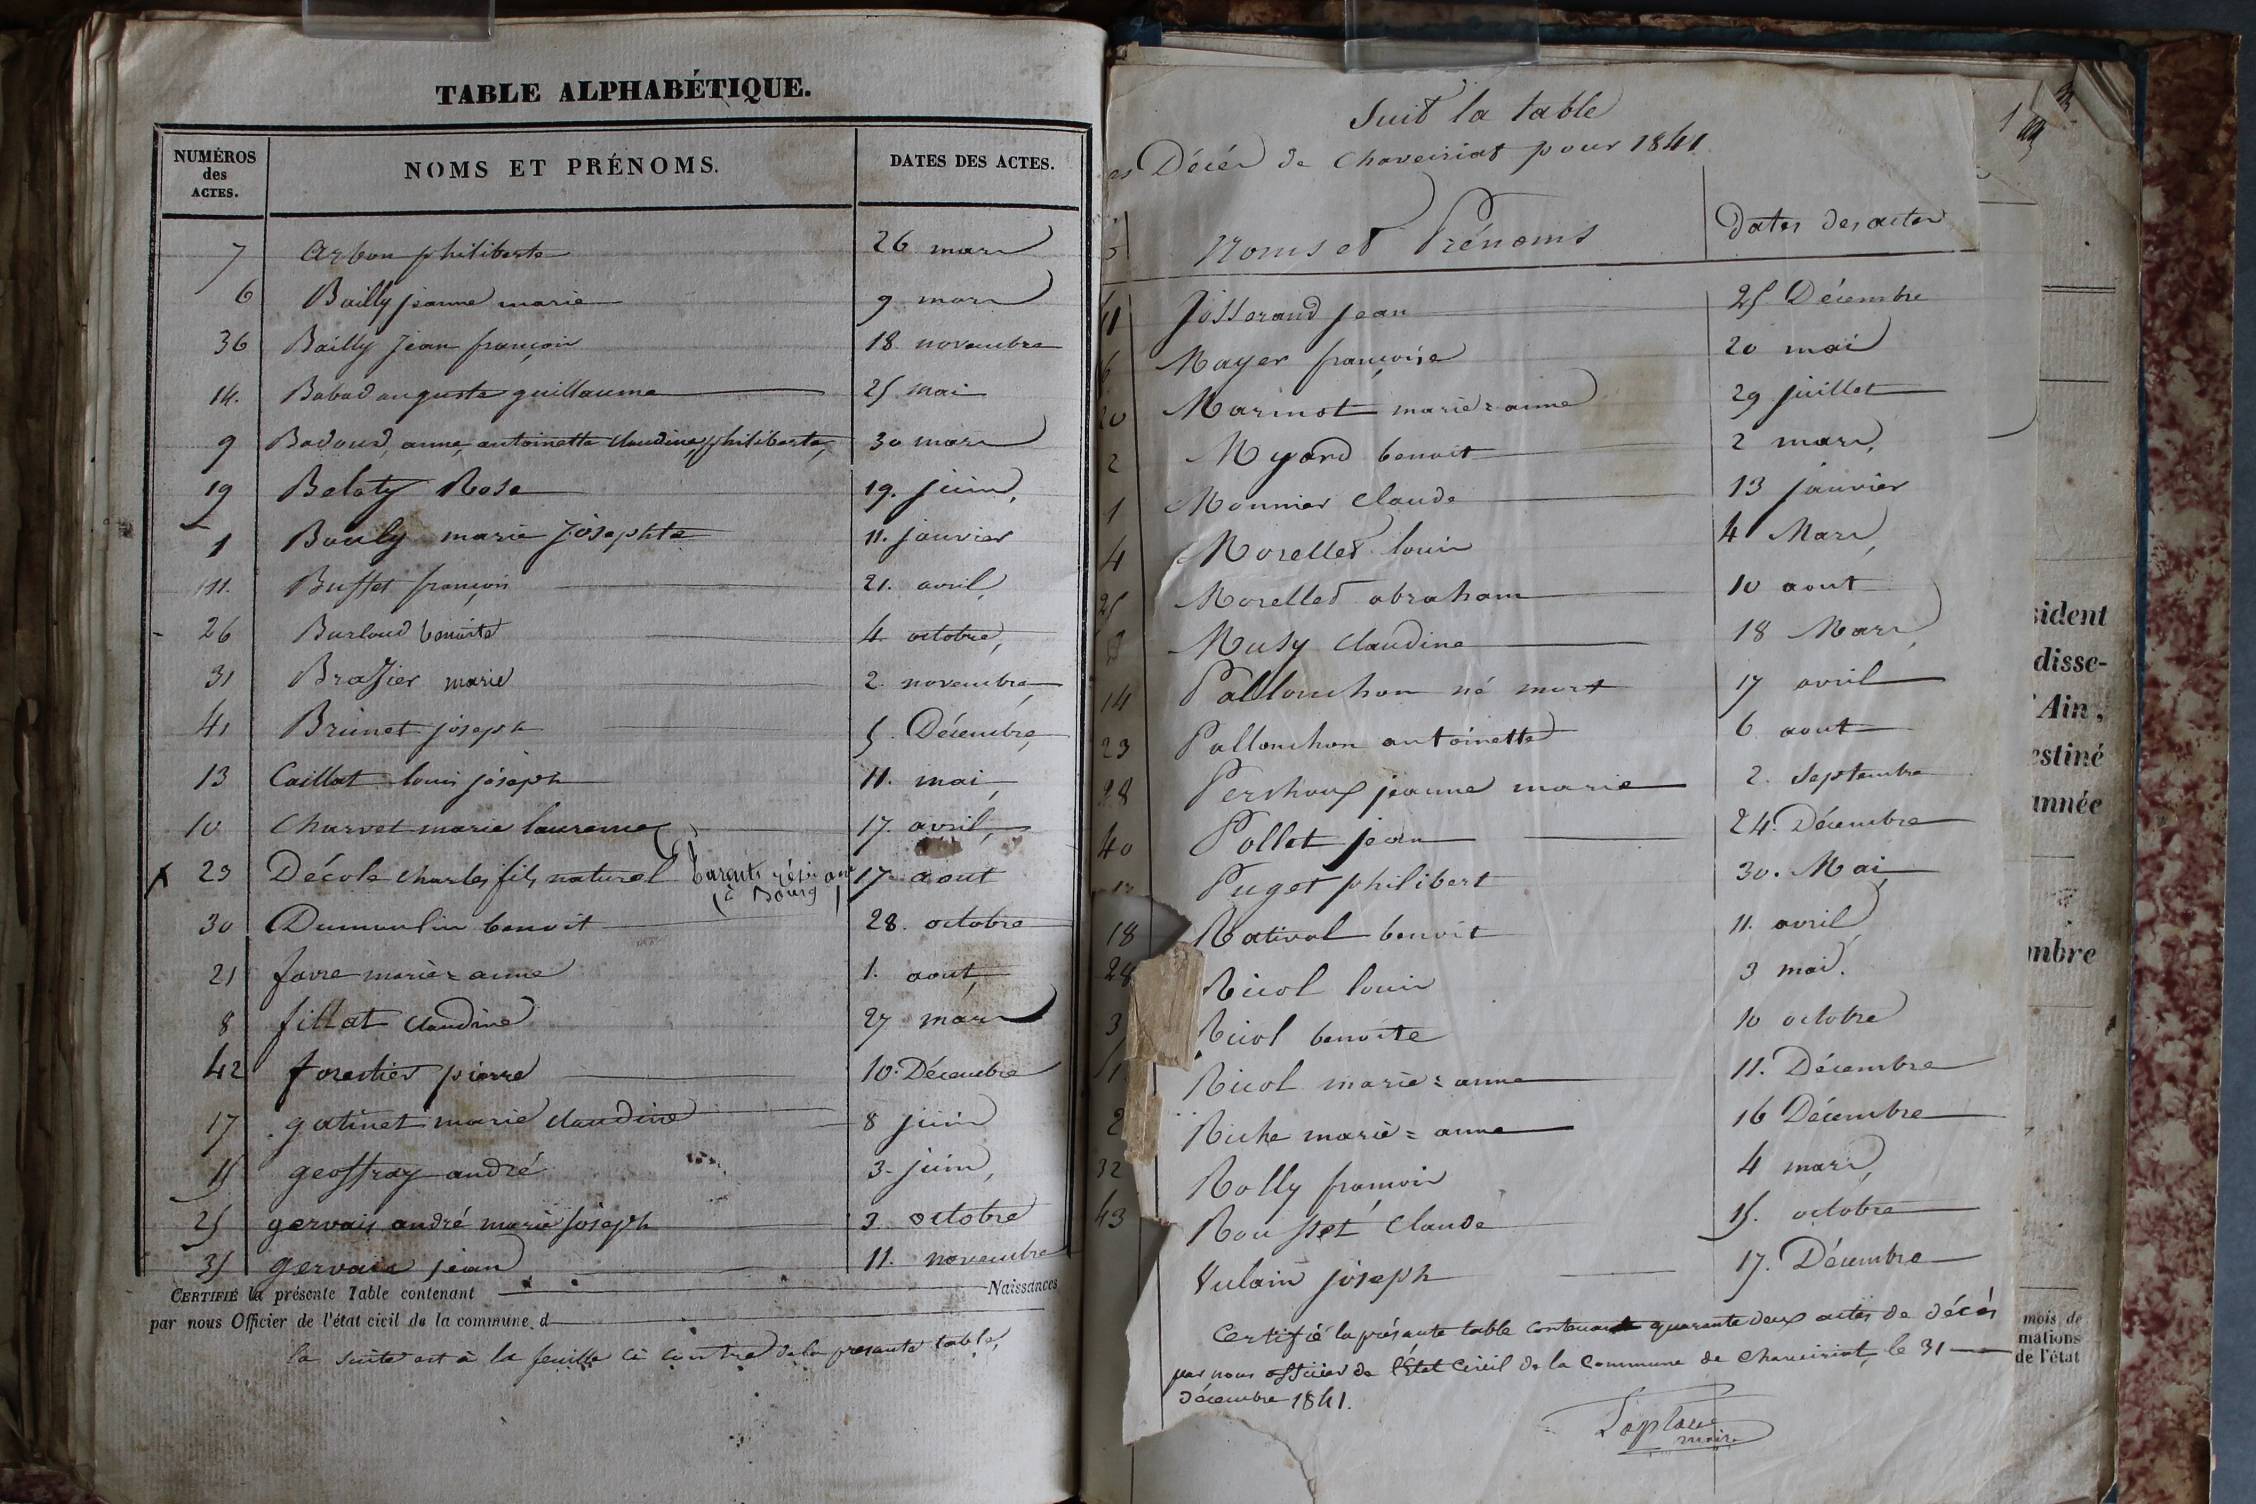 TABLE ALPHABÉTIQUE.
NUMÉROS des ACTES. NOMS ET PRÉNOMS. DATES DES ACTES.
7 Arbon philiberte 26 mars
6 Bailly jeanne marie 9 mars
36 Bailly Jean françois 18 novembre
14. Babad auguste guillaume 25 mai
9 Badoud, anne, antoinette claudine, philiberte, 30 mars
19 Belaty Rose 19. juin,
1 Bouly marie josephte 11. janvier
11. Buffet françois 21. avril,
26 Burloud benoite 4. octobre,
31 Brasier marie 2. novembre,
41 Brunet joseph 5. Décembre,
13 Caillat louis joseph 11. mai,
10 Charvet marie laurence 17. avril,
x 23 Décole charles fils naturel parents à Bourg 17 aout
30 Dumoulin benoit 28. octobre
21 favre marie=anne 1. aout,
8 fillat claudine 27 mars
42 forestier pierre 10. Décembre
17 gatinet marie claudine 8 juin
15 geoffray andré 3. juin,
25 gervais andré marie joseph 3. octobre
35 gervais jean 11. novembre
CERTIFIÉ la présente Table contenant Naissances
par nous Officier de l'état civil de la commune d
la suite est à la feuille ci contre de la presente table,
Suit la table
es Décès de chaveiriat pour 1841
Noms et Prénoms Dates des actes
Josserand jean 25 Décembre
6 Mayer françoise 20 mai
20 Marinot marie=anne 29 juillet
2 Myard benoit 2 mars,
1 Monnier claude 13 janvier
4 Morellet louis 4 Mars,
25 Morellet abraham 10 aout
Musy claudine 18 Mars,
14 Pallouchon né mort 17 avril
23 Pallouchon antoinette 6 aout
28 Pershoux jeanne marie 2. Septembre
40 Pollet jean 24. Décembre
Puget philibert 30. Mai
18 Rativol benoit 11. avril
28 Ricol louis 3 mai.
3 Ricol benoite 10 octobre
1 Ricol marie=anne 11. Décembre
2 Riche marie=anne 16 Décembre
32 Rolly françois 4 mars,
43 Rousset claude 15. octobre
Vulain joseph 17. Décembre
Certifié la présente table contenant quarante deux actes de décès
par nous officier de l'État Civil de la Commune de chaveiriat, le 31
décembre 1841.
Laplace
maire
sident
disse-
Ain,
estiné
année
mbre
mois de
mations
de l'état